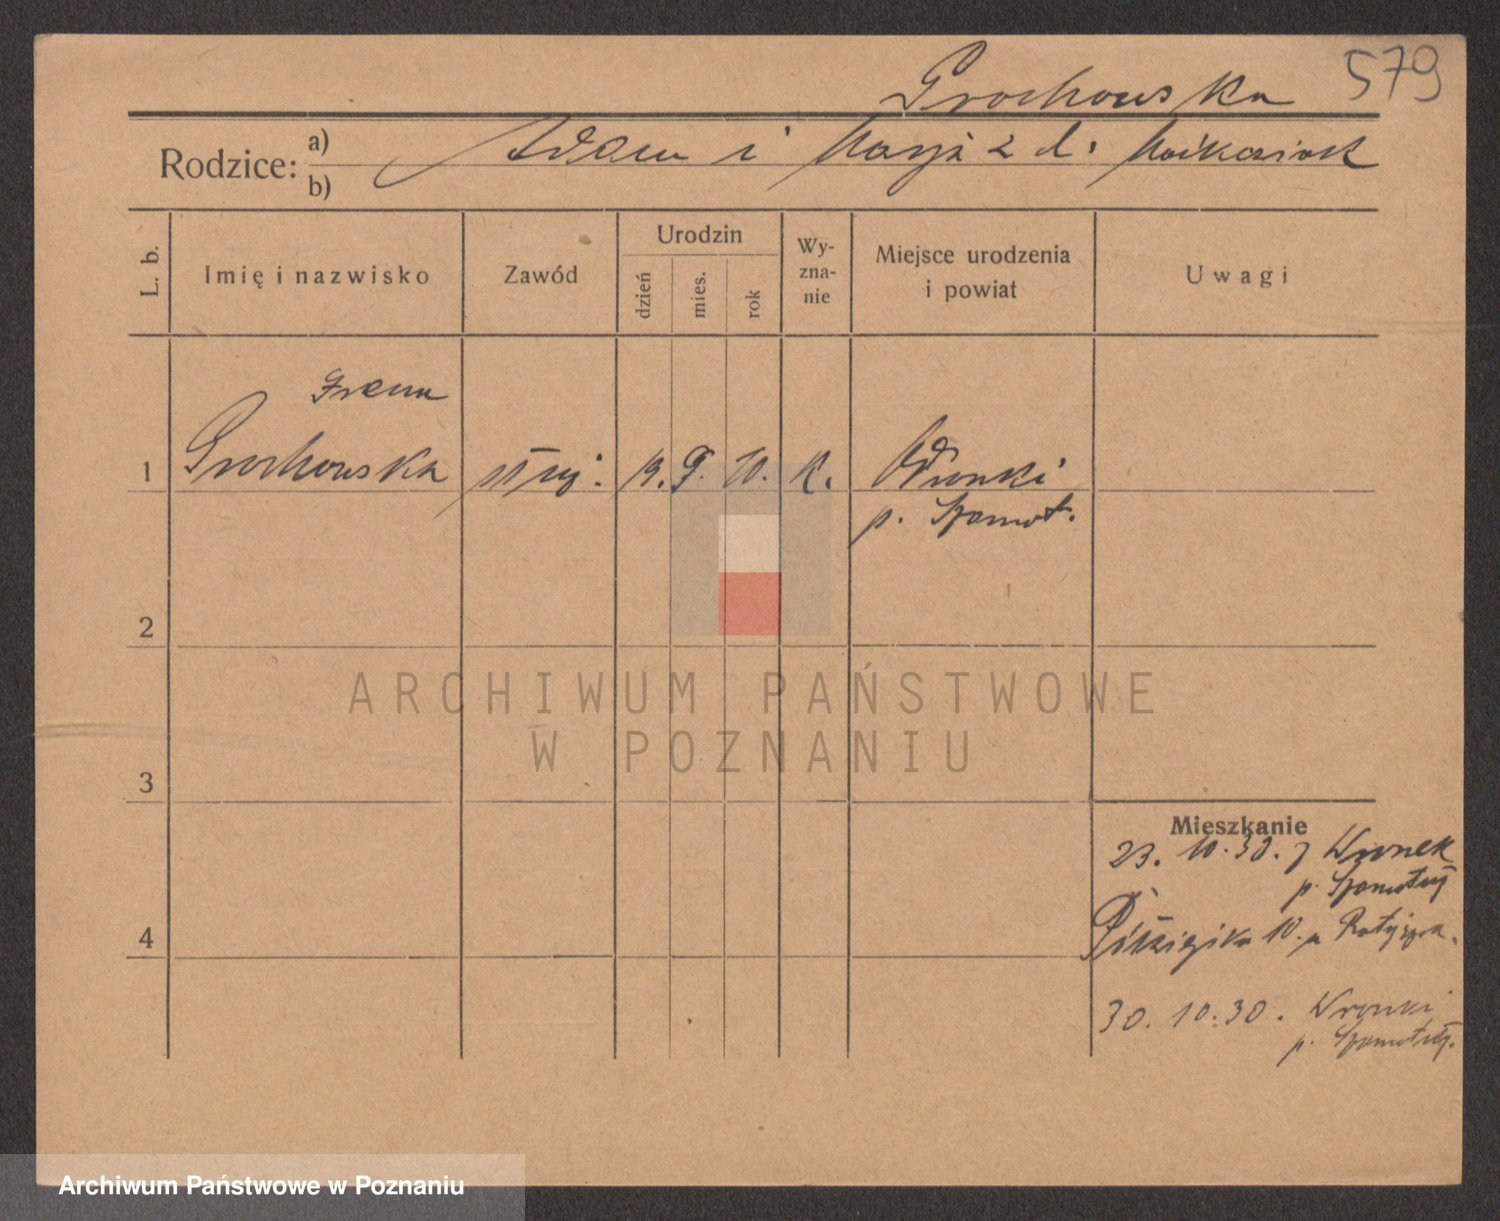 Grochowska 579
Rodzice: a) b) Adam i Marja z d.
L. b.
Imię i nazwisko
Zawód
Urodzin
dzień
mies.
rok
Wy-
zna-
nie
Miejsce urodzenia
i powiat
Uwagi
Irena
1 Grochowska służ. 19. 9. 10. k. Wronki
p. Szamot.
2
3
Mieszkanie
23. 10. 30. z Wronek
p. Szamotuły
4 10.
30. 10. 30. Wronki
p. Szamotuły.
ARCHIWUM PAŃSTWOWE
W POZNANIU
Archiwum Państwowe w Poznaniu